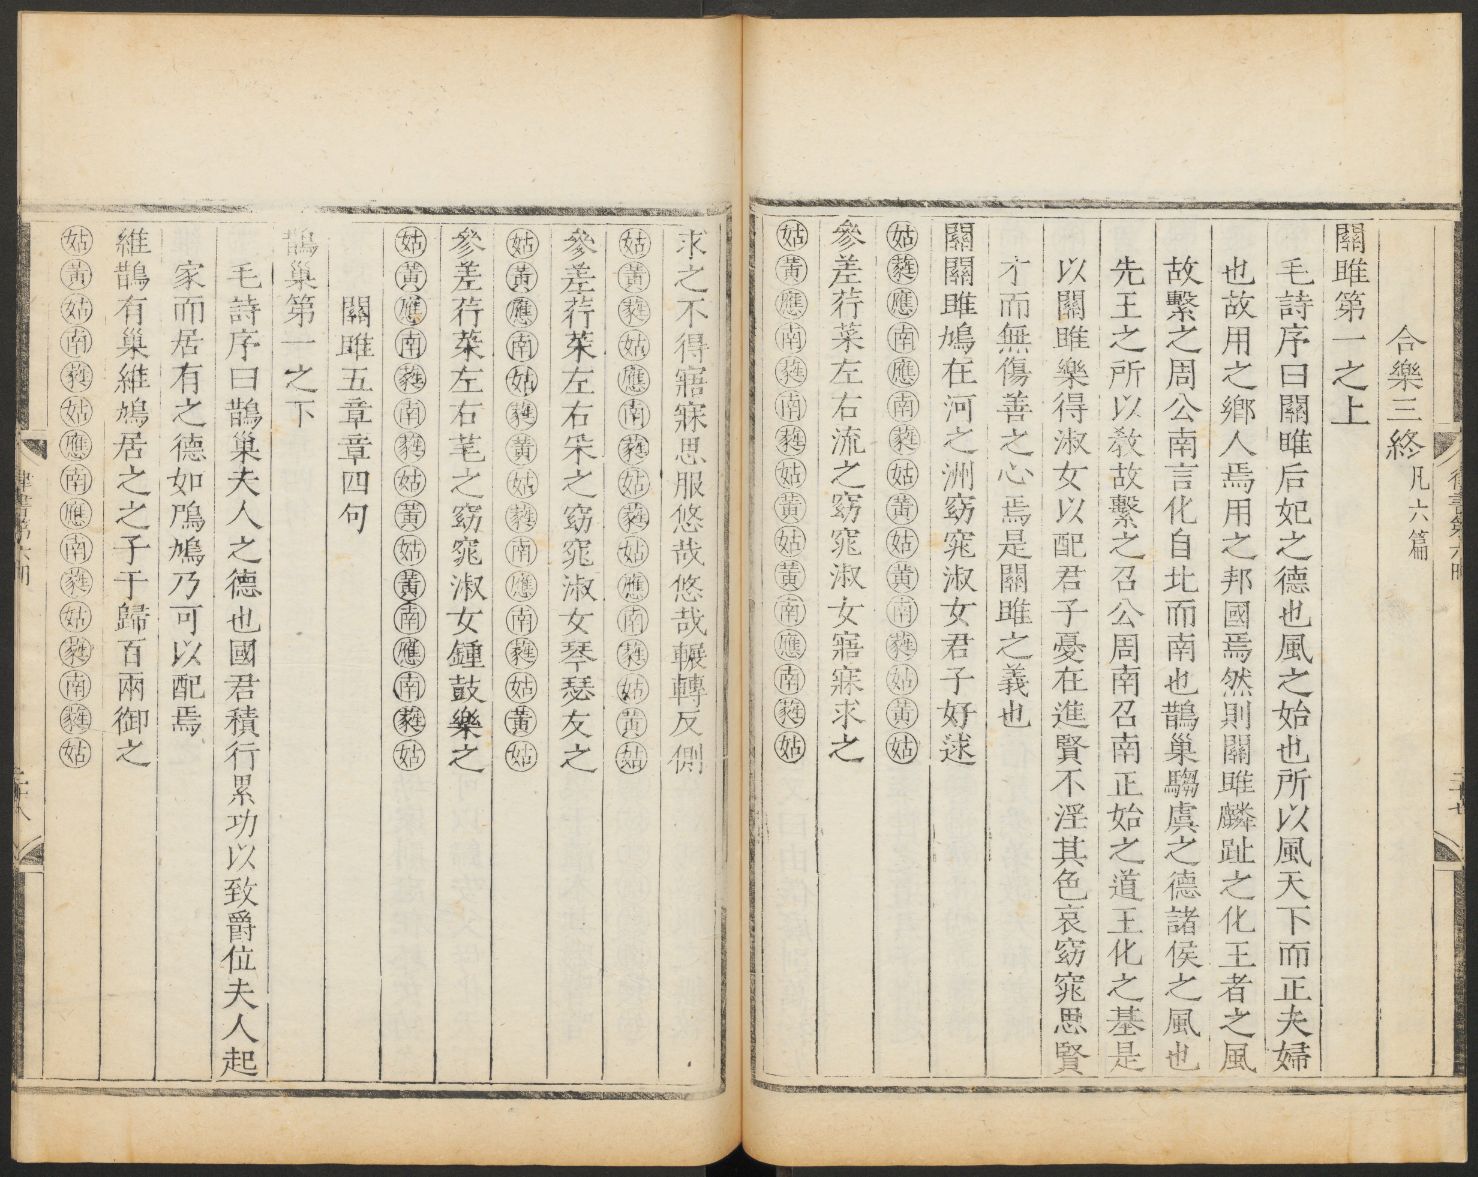 合樂三終凡六篇
關雎第一之上
毛詩序曰關雎后妃之德也風之始也所以風天下而正夫婦
也故用之鄉人焉用之邦國焉然則關雎麟趾之化王者之風
故繫之周公南言化自北而南也鵲巢騶虞之德諸侯之風也
先王之所以敎故繫之召公周南召南正始之道王化之基是
以關雎樂得淑女以配君子憂在進賢不淫其色哀窈窕思賢
才而無傷善之心焉是關雎之義也
關關雎鳩在河之洲窈窕淑女君子好逑
姑蕤應南應南蕤姑黃姑黃南蕤姑黃姑
參差荇菜左右流之窈窕淑女寤寐求之
姑黃應南蕤南蕤姑黃姑黃南應南蕤姑
求之不得寤寐思服悠哉悠哉輾轉反側
姑黃蕤姑應南蕤姑蕤姑應南蕤姑黃姑
參差荇菜左右采之窈窕淑女琴瑟友之
姑黃應南姑蕤黃姑蕤南應南蕤姑黃姑
參差荇菜左右芼之窈窕淑女鍾鼓樂之
姑黃應南蕤南蕤姑黃姑黃南應南蕤姑
關雎五章章四句
鵲巢第一之下
毛詩序曰鵲巢夫人之德也國君積行累功以致爵位夫人起
家而居有之德如鳲鳩乃可以配焉
維鵲有巢維鳩居之之子于歸百兩御之
姑黃姑南蕤姑應南應南蕤姑蕤南蕤姑